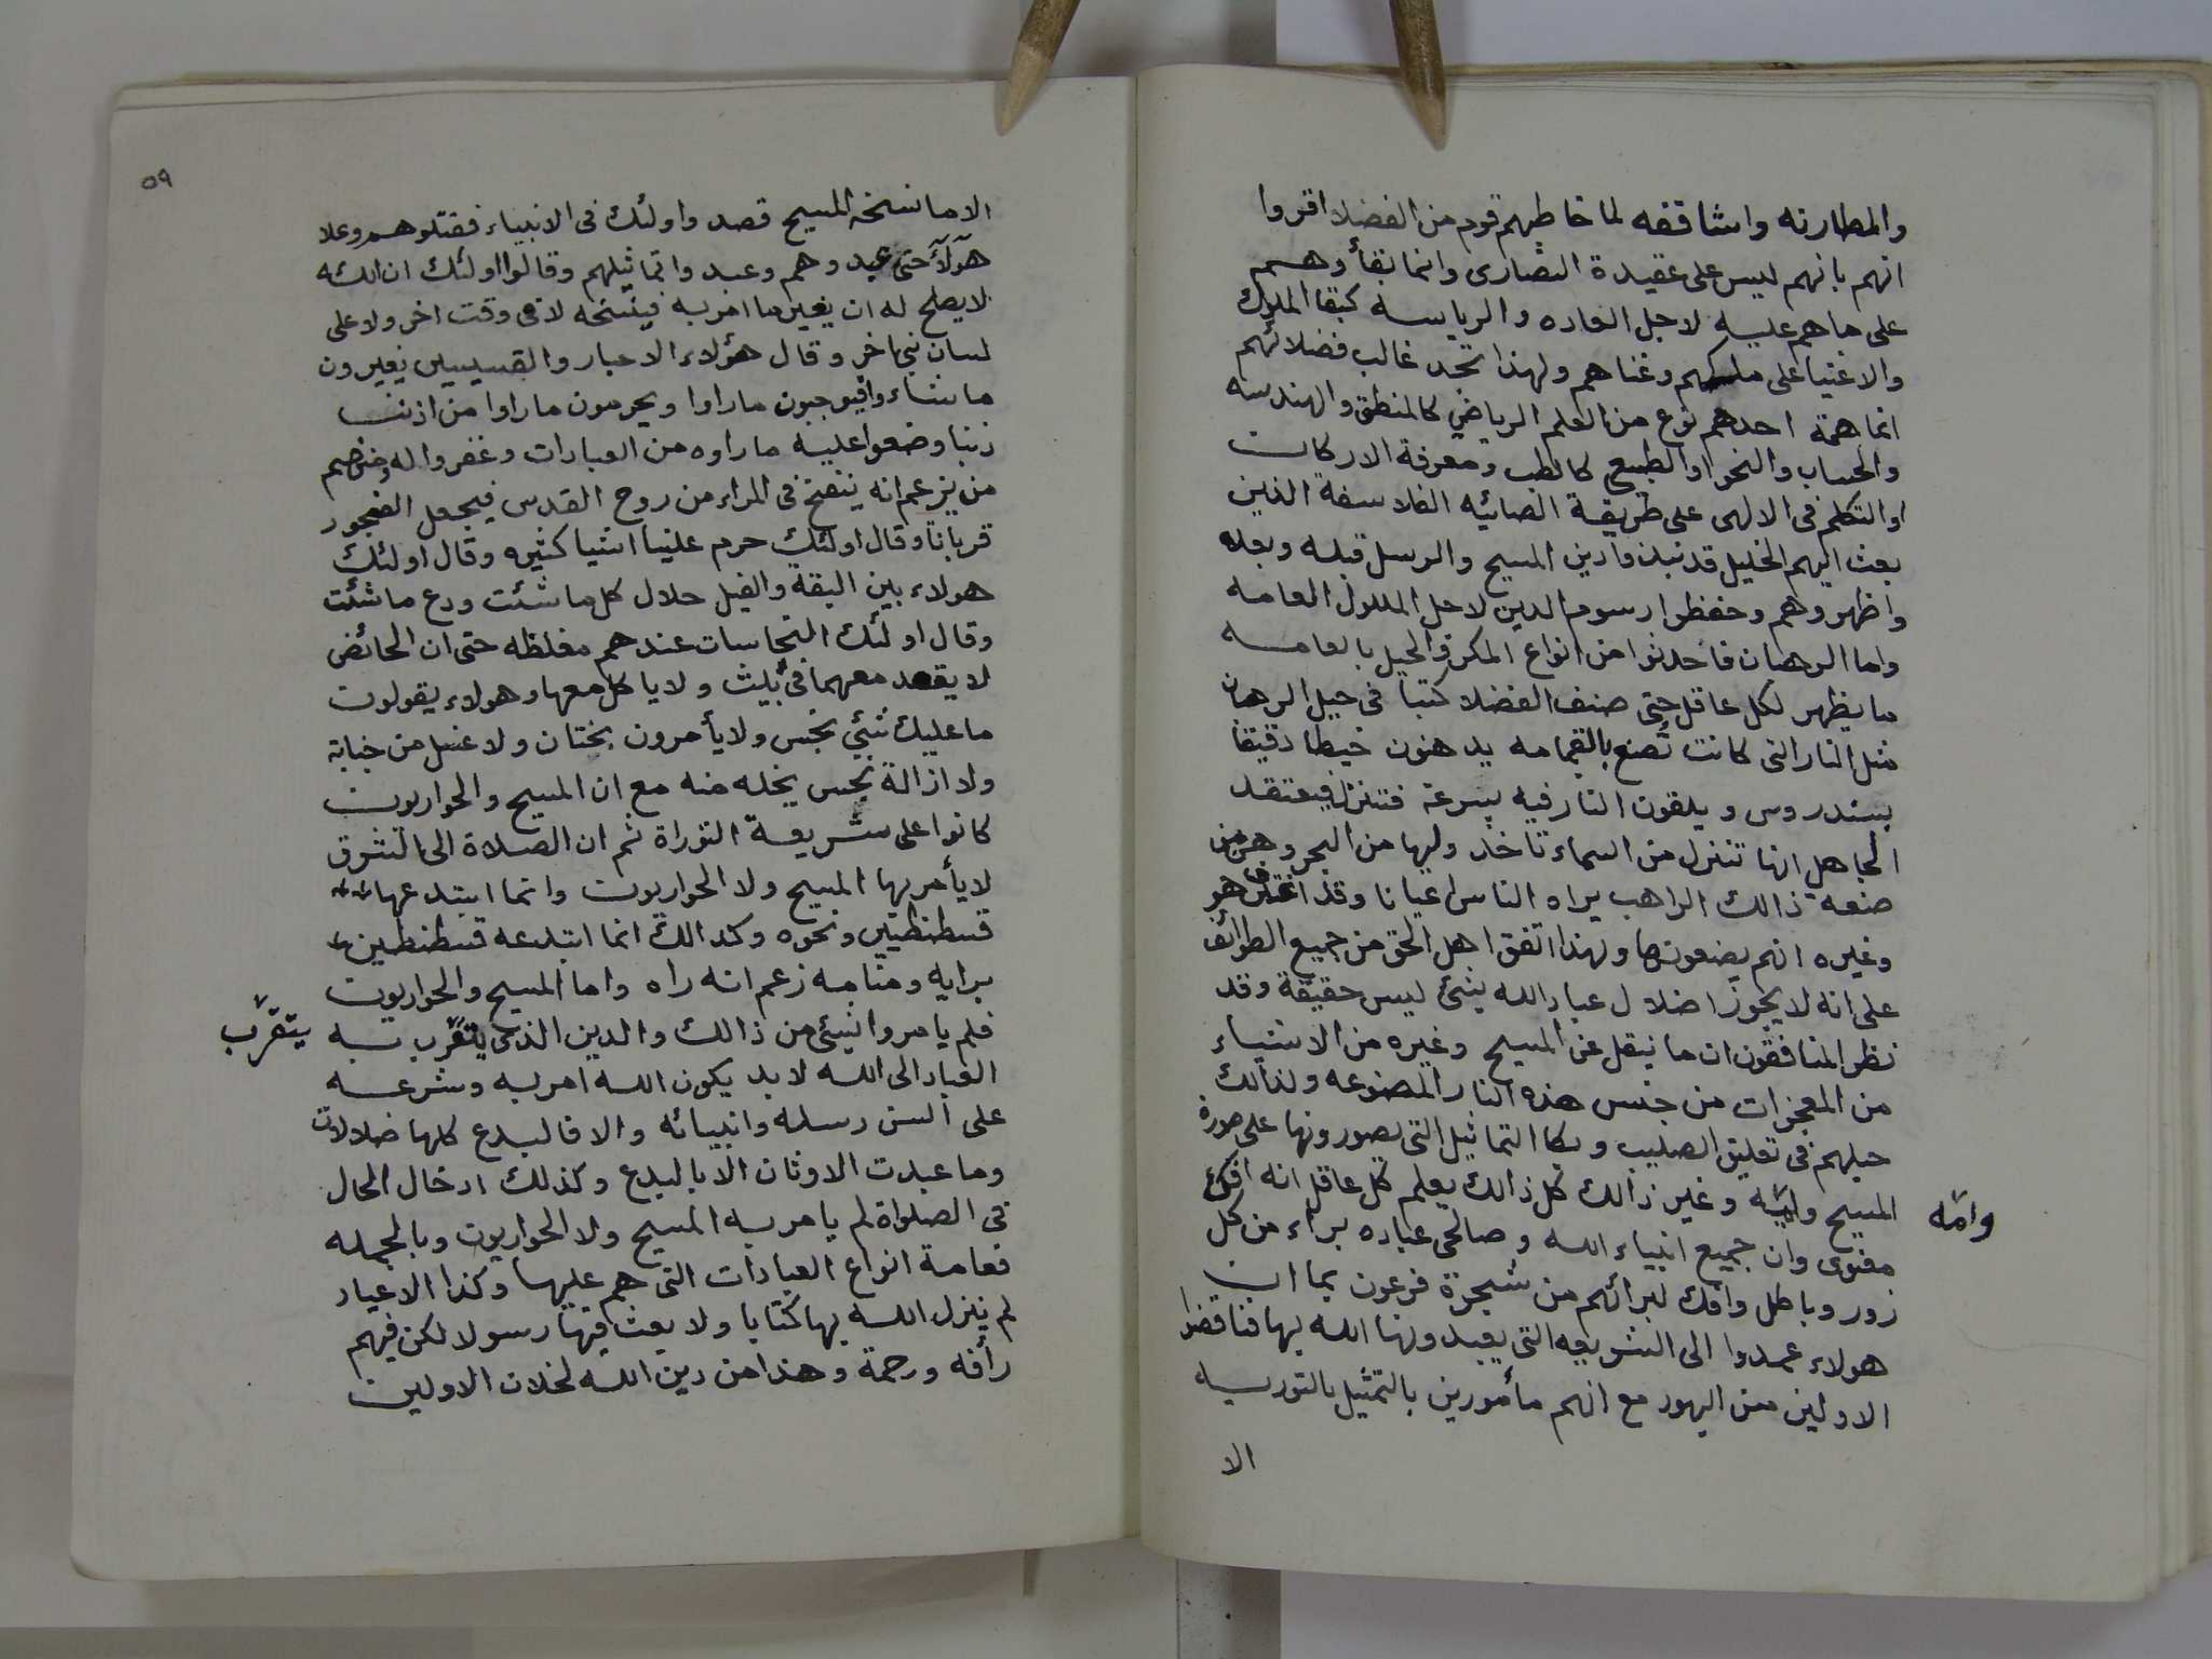 والمطارنه واشاقفه لما خاطبهم قوم من الفضلا اقروا
انهم بانهم ليس على عقيدة النصارى وانما بقأوهم
على ما هم عليه لاجل العاده والرياسه كبقا الملوك
والاغنيا على ملكهم وغناهم ولهذا تجد غالب فضلائهم
انما همة احدهم نوع من العلم الرياضي كالمنطق والهندسه
والحساب والنحو او الطبيع كالطب ومعرفة الاركان
او التكلم فى الالهى على طريقة الصائيه الفلاسفة الذين
بعث اليهم الخليل قد نبذوا دين المسيح والرسل قبله وبعده
واظهروهم وحفظوا رسوم الدين لاجل الملوك العامه
واما الرهبان فاحدثوا من انواع المكر والحيل بالعامه
ما يظهر لكل عاقل حتى صنف الفضلا كتبا فى حيل الرهبان
مثل النار التى كانت تصنع بالقمامه يدهنون خيطا دقيقا
بسندروس ويلقون النار فيه بسرعة فتنزل فيعتقد
الجاهل انها تنزل من السماء تاخذ وليها من البحر وهى من
صنعة ذالك الراهب يراه الناس عيانا وقد اعترف هو
وغيره انهم يصنعونها ولهذا اتفق اهل الحق من جميع الطوائف
على انه لا يجوز اضلال عباد الله بشئ ليس حقيقة وقد
نظر المنافقون ان ما ينقل عن المسيح وغيره من الانبياء
من المعجزات من جنس هذه النار المصنوعه ولذالك
حيلهم فى تعليق الصليب وبكا التماثيل التى يصورونها على صورة
المسيح وامّه وغير ذالك كل ذالك يعلم كل عاقل انه افك
وامّه
مفترى وان جميع انبياء الله وصالحى عباده برأء من كل
زور وباطل وافك لبرائهم من شجرة فرعون بما ان
هولاء عمدوا الى الشريعه التى يعبدونها الله بها فناقضوا
الاولين من اليهود مع انهم مأمورين بالتمثيل بالتوريه
الا
٥٩
الا ما نسخه المسيح قصد واولئك فى الانبياء فقتلوهم وعلا
هولآء حتى عبدوهم وعبدوا تماثيلهم وقالوا اولئك ان الله
لا يصلح له ان يغير ما امر به فينسخه لا فى وقت اخر ولا على
لسان نبى اخر وقال هؤلاء الاحبار والقسيسين يغيرون
ما شاءوا فيوجبون ما راوا ويحرمون ما راوا من اذنب
ذنبا وضعوا عليه ما راوه من العبادات وغفروا له ومنهم
من يزعم انه ينفخ فى المراء من روح القدس فيجعل الفجور
قربانا وقال اولئك حرم علينا اشيا كثيره وقال اولئك
هولاء بين البقة والفيل حلال كل ما شئت ودع ما شئت
وقال اولئك النجاسات عندهم مغلظه حتى ان الحائض
لا يقعد معهما فى بيت ولا ياكل معها وهولاء يقولون
ما عليك شيئ نجس ولا يأمرون بختان ولا غسل من جنابة
ولا ازالة نجس يخله منه مع ان المسيح والحواريون
كانوا على شريعة التوراة ثم ان الصلاة الى الشرق
لا يأمر بها المسيح ولا الحواريون وانما ابتدعها
قسطنطيين ونحوه وكذالك انما ابتدعه قسطنطين
برايه ومنامه زعم انه راه واما المسيح والحواريون
فلم يامروا بشئ من ذالك والدين الذى يتقرب به
يتقرّب
العباد الى الله لا بد يكون الله امر به وشرعه
على السن رسله وانبيائه والا فالبدع كلها ضلالات
وما عبدت الاوثان الا بالبدع وكذلك ادخال الحال
فى الصلواة لم يامر به المسيح ولا الحواريون وبالجمله
فعامة انواع العبادات التى هم عليها وكذا الاعياد
لم ينزل الله بها كتابا ولا بعث فيها رسولا لكن فيهم
رأفه ورحمة وهذا من دين الله لخلاف الاولين